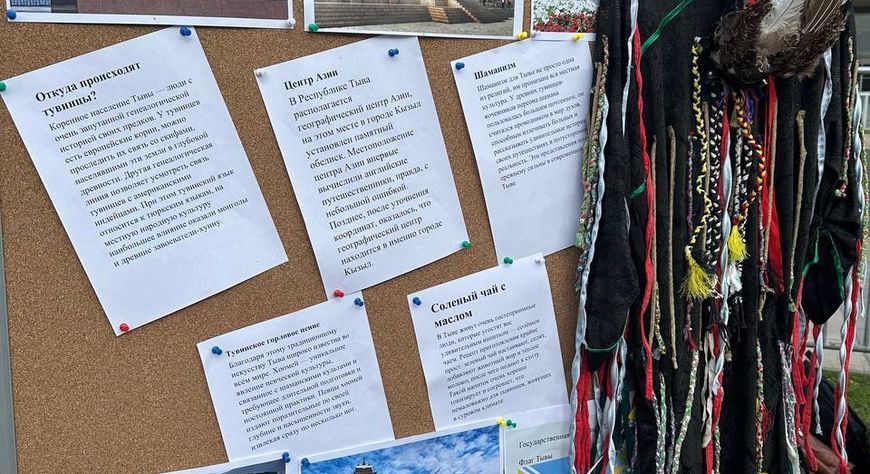 Откуда происходят
тувинцы?
Коренное население Тывы — люди с
очень запутанной генеалогической
историей своих предков. У тувинцев
есть европейские корни, можно
проследить их связь со скифами,
населявшими эти земли в глубокой
древности. Другая генеалогическая
линия позволяет усмотреть связь
тувинцев с американскими
индейцами. При этом тувинский язык
относится к тюркским языкам, на
местную народную культуру
наибольшее влияние оказали монголы
и древние завоеватели-хунну.
Центр Азии
В Республике Тыва
располагается
географический центр Азии,
на этом месте в городе Кызыл
установлен памятный
обелиск. Местоположение
центра Азии впервые
вычислили английские
путешественники, правда, с
небольшой ошибкой.
Позднее, после уточнения
координат, оказалось, что
географический центр
находится в именно городе
Кызыл.
Шаманизм
Шаманизм для Тывы не просто одна
из религий, им пронизана вся местная
культура. У древних тувинцев-
кочевников персона шамана
пользовалась большим почтением, он
считался проводником в мир духов,
способным излечивать больных и
рассказывать удивительные истории
своих путешествий в потустороннюю
реальность. Эти представления по-
прежнему сильны в современной
Тыве
Тувинское горловое пение
Благодаря этому традиционному
искусству Тыва широко известна во
всём мире. Хоомей — уникальное
явление певческой культуры,
связанное с шаманскими культами и
требующее длительной подготовки и
постоянной практики. Певцы хоомей
издают поразительные по своей
глубине и насыщенности звуки,
извлекая сразу по несколько нот.
Соленый чай с
маслом
В Тыве живут очень гостеприимные
люди, которые угостят вас
удивительным напитком — солёным
чаем. Рецепт приготовления крайне
прост: зеленый чай настаивают, солят,
добавляют животный жир и тёплое
молоко, после чего подают к столу.
Такой напиток очень хорошо
тонизирует и согревает, что
немаловажно для тувинцев, живущих
в суровом климате.
Государственный
Флаг Тывы